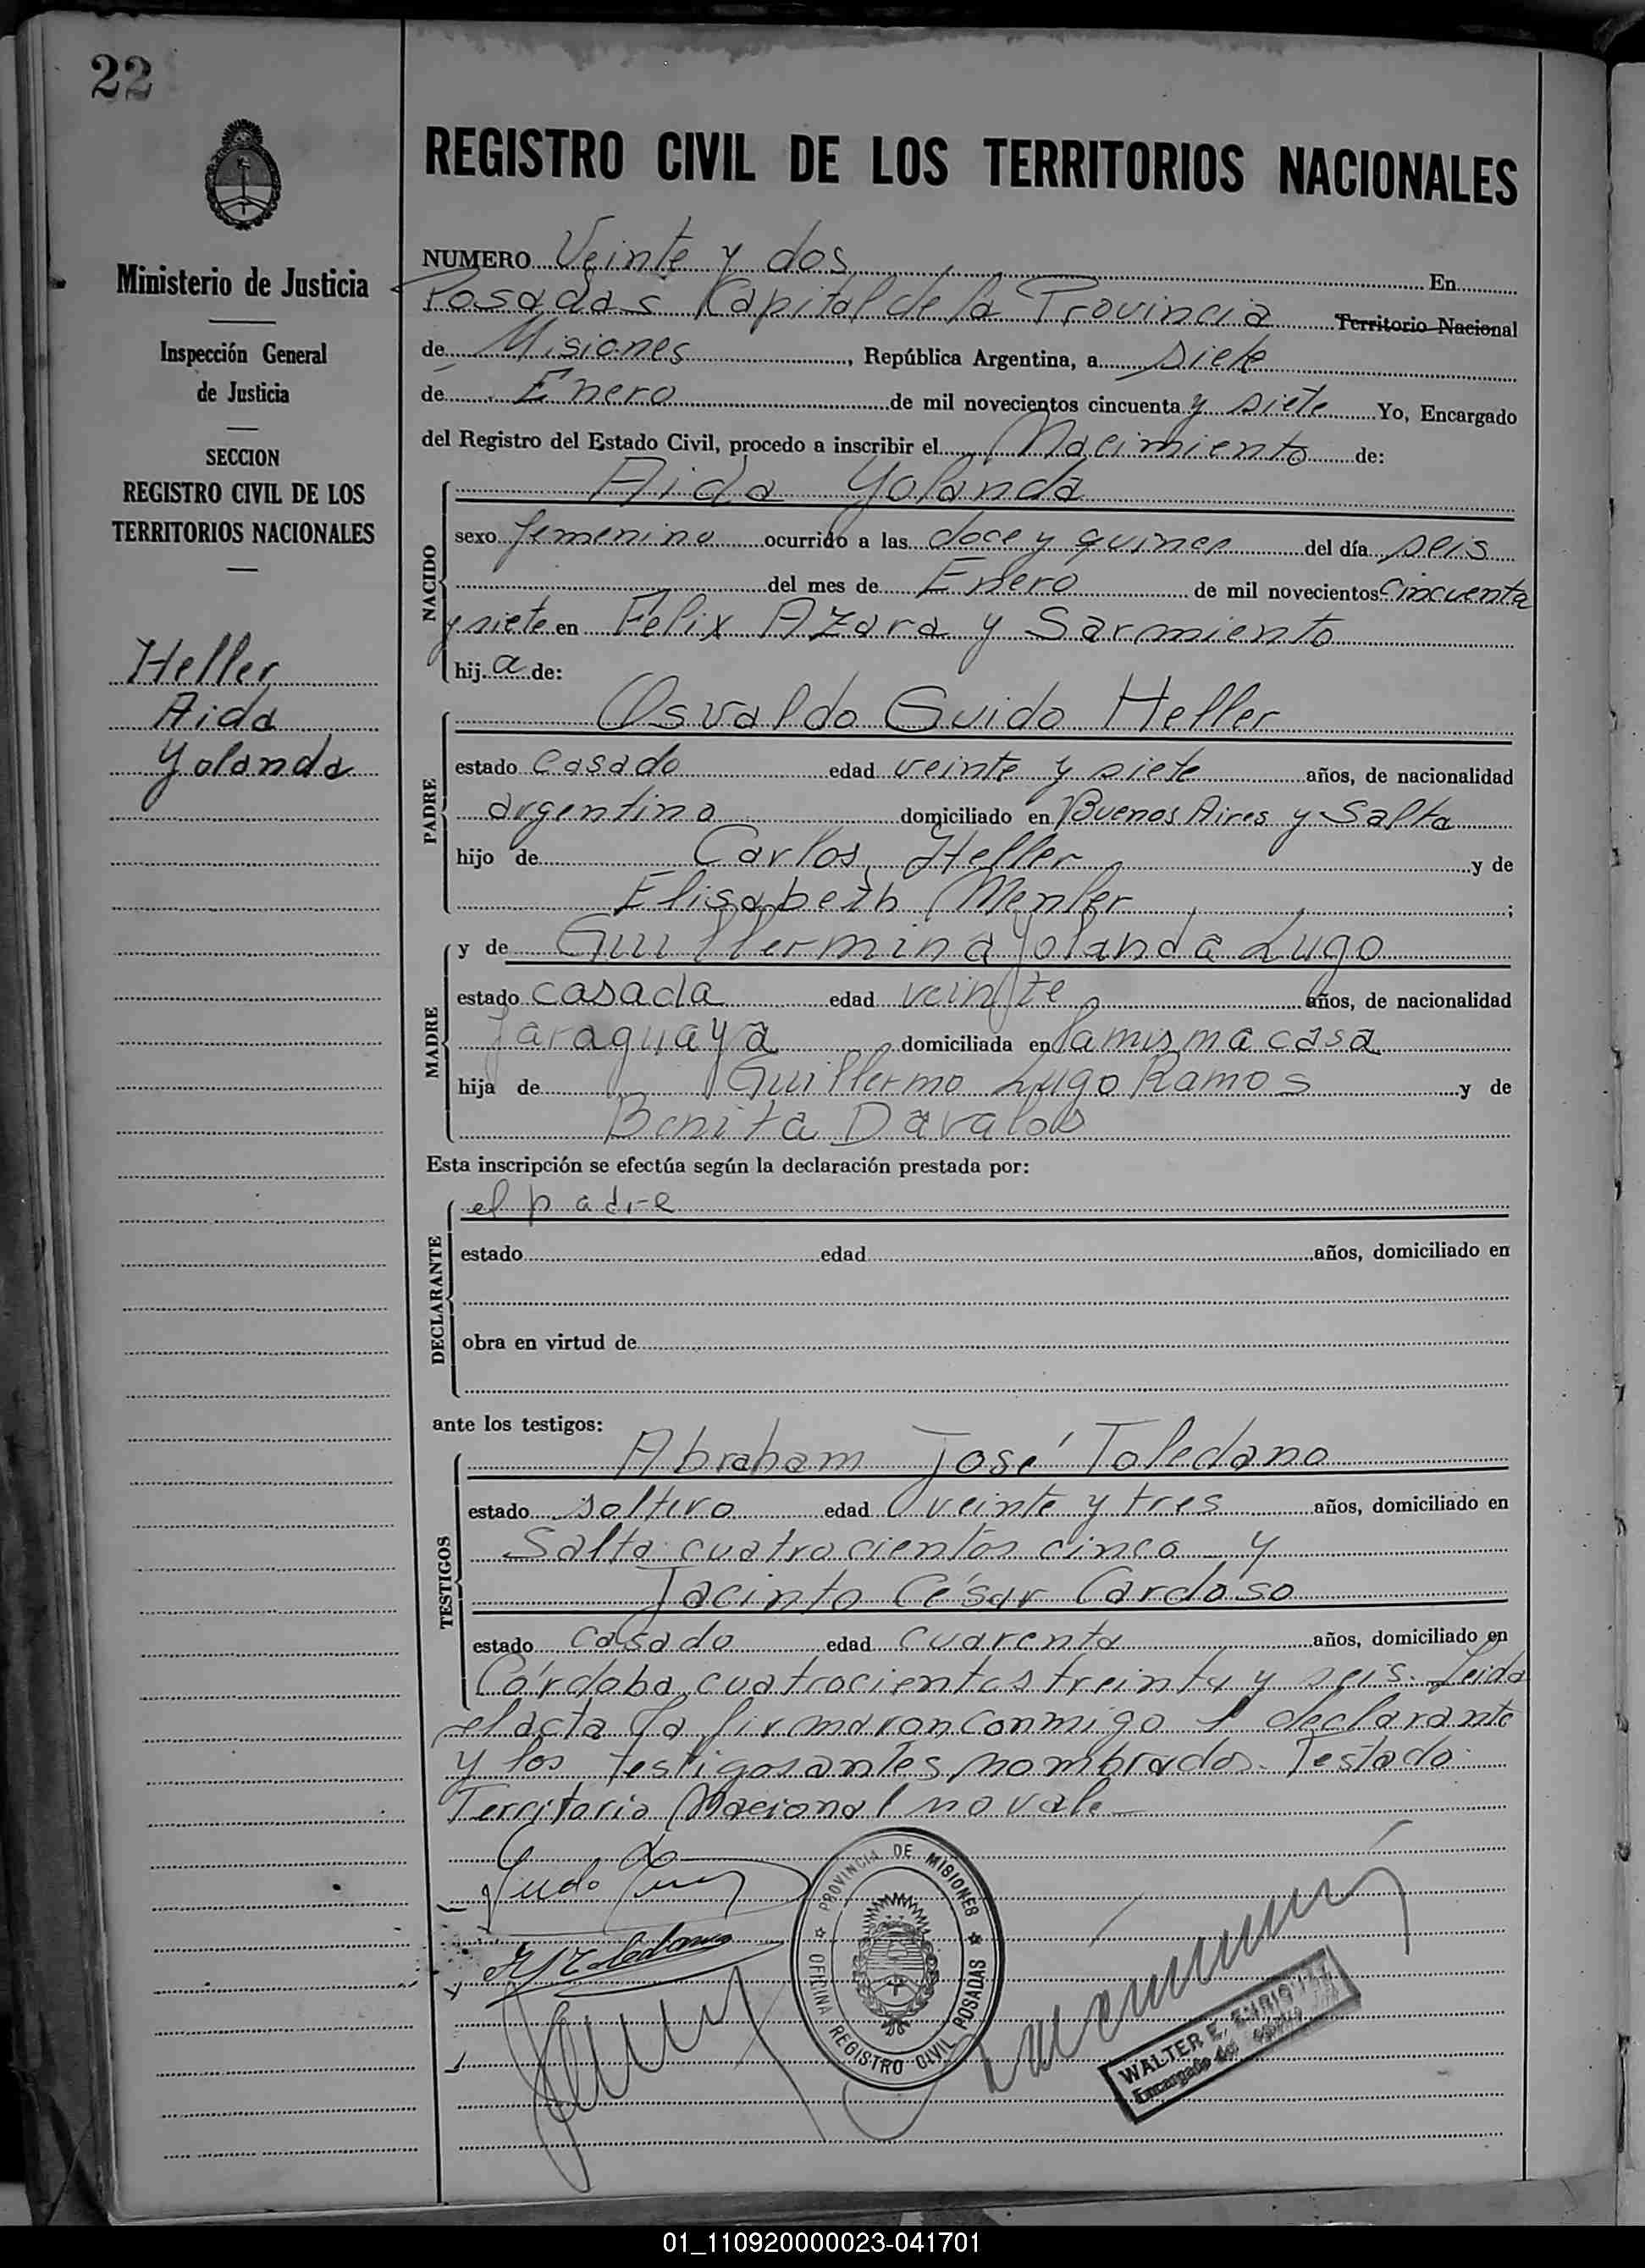 22
REGISTRO CIVIL DE LOS TERRITORIOS NACIONALES
Ministerio de Justicia
Inspección General
de Justicia
SECCION
REGISTRO CIVIL DE LOS
TERRITORIOS NACIONALES
Heller
Aida
Yolanda
NUMERO Veinte y dos En
Posadas Capital de la Provincia Territorio Nacional
de Misiones, República Argentina, a siete
de Enero de mil novecientos cincuenta y siete Yo, Encargado
del Registro del Estado Civil, procedo a inscribir el Nacimiento de:
NACIDO
Aida Yolanda
sexo femenino ocurrido a las doce y quince del día seis
del mes de Enero de mil novecientos cincuenta
y siete en Felix Azara y Sarmiento
hij a de:
PADRE
Osvaldo Guido Heller
estado casado edad veinte y siete años, de nacionalidad
argentino domiciliado en Buenos Aires y Salta
hijo de Carlos Heller y de
Elisabeth ;
MADRE
y de Guillermina Yolanda Lugo
estado casada edad veinte años, de nacionalidad
paraguaya domiciliada en la misma casa
hija de Guillermo Lugo Ramos y de
Benita Davalos
Esta inscripción se efectúa según la declaración prestada por:
DECLARANTE
el padre
estado edad años, domiciliado en
obra en virtud de
ante los testigos:
TESTIGOS
Abraham José Toledano
estado soltero edad veinte y tres años, domiciliado en
Salta cuatrocientos cinco y
Jacinto César Cardoso
estado casado edad cuarenta años, domiciliado en
Córdoba cuatrocientos treinta y seis. Leida
el acta la firmaron conmigo el declarante
y los testigos antes nombrados. Testado:
Territorio Nacional no vale
PROVINCIA DE MISIONES
OFICINA REGISTRO CIVIL POSADAS
WALTER E.
Encargado del
01_110920000023-041701